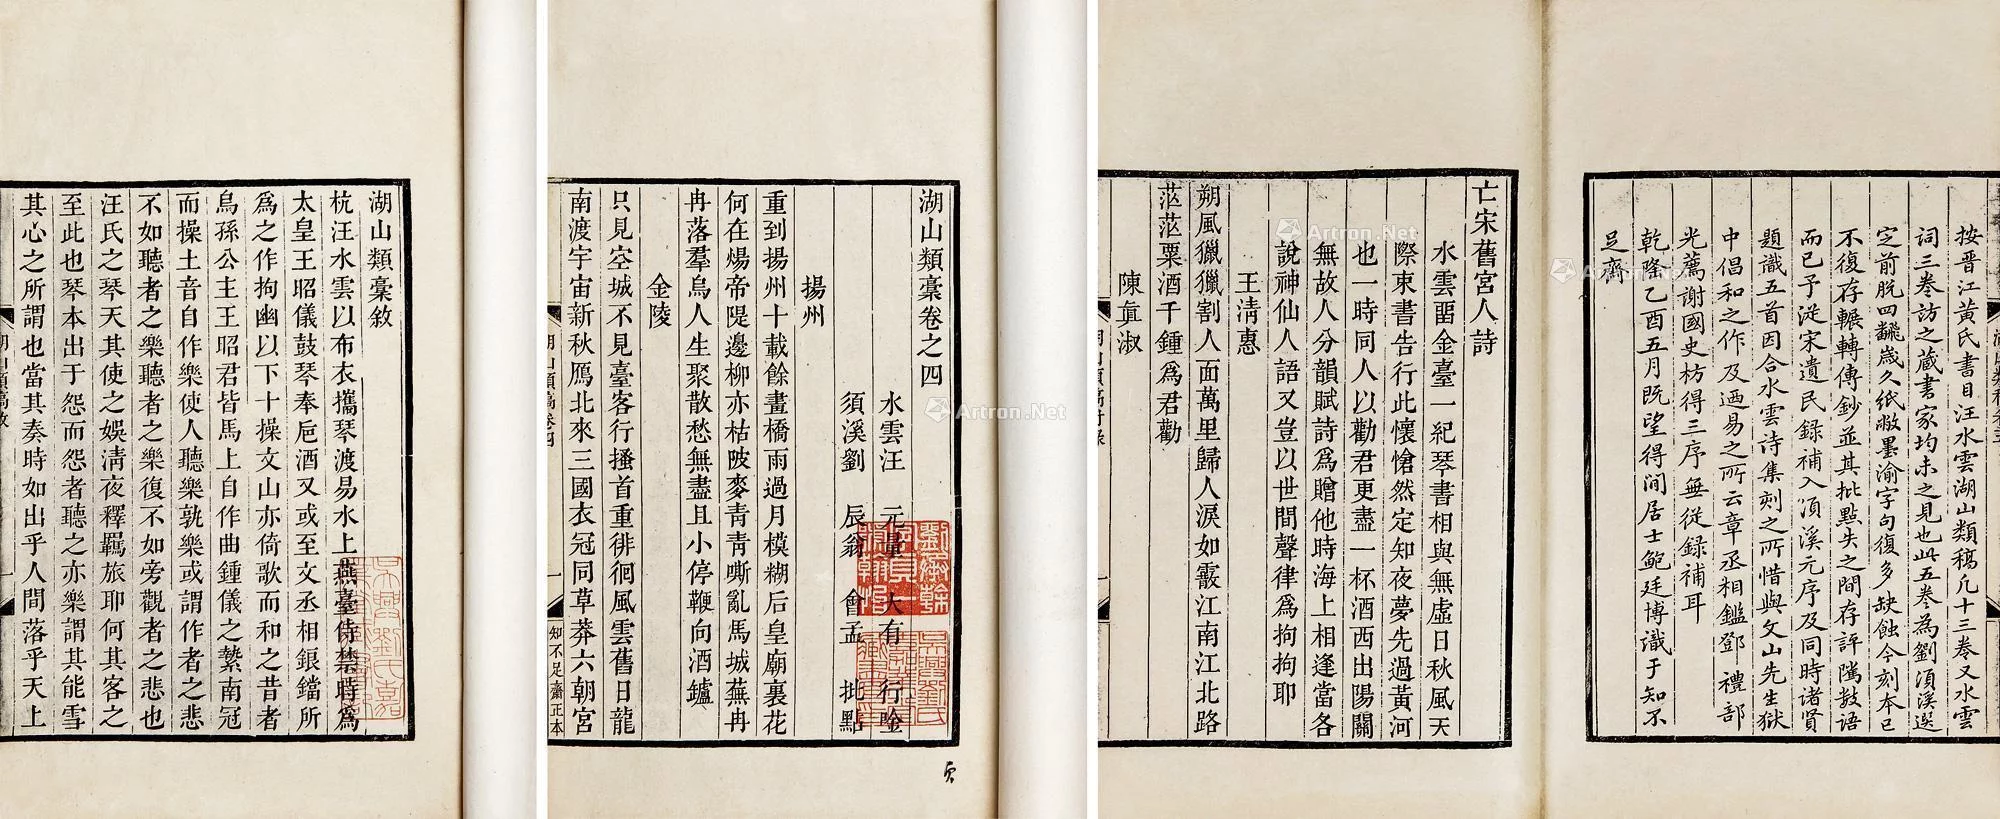 湖山類稾敘
杭汪水雲以布衣攜琴渡易水上燕臺侍禁時爲
太皇王昭儀鼓琴奉卮酒又或至文丞相銀鐺所
爲之作拘幽以下十操文山亦倚歌而和之昔者
烏孫公主王昭君皆馬上自作曲鍾儀之縶南冠
而操土音自作樂使人聽樂孰樂或謂作者之悲
不如聽者之樂聽者之樂復不如旁觀者之悲也
汪氏之琴天其使之娛清夜釋羈旅耶何其客之
至此也琴本出于怨而怨者聽之亦樂謂其能雪
其心之所謂也當其奏時如出乎人間落乎天上
湖山類稾卷之四
水雲汪 元量 大有 行唫
須溪劉 辰翁 會孟 批點
揚州
重到揚州十載餘畫橋雨過月模糊后皇廟裏花
何在煬帝隄邊柳亦枯陂麥青青嘶亂馬城蕪冉
冉落羣烏人生聚散愁無盡且小停鞭向酒鑪
金陵
只見空城不見臺客行搔首重徘徊風雲舊日龍
南渡宇宙新秋鴈北來三國衣冠同草莽六朝宮
湖山類稿卷四
一
知不足齋正本
亡宋舊宮人詩
水雲畱金臺一紀琴書相與無虛日秋風天
際東書告行此懷愴然定知夜夢先過黃河
也一時同人以勸君更盡一杯酒西出陽關
無故人分韻賦詩爲贈他時海上相逢當各
說神仙人語又豈以世間聲律爲拘拘耶
王清惠
朔風獵獵割人面萬里歸人淚如霰江南江北路
茫茫粟酒千鍾爲君勸
陳眞淑
按晉江黃氏書目汪水雲湖山類稿凡十三卷又水雲
詞三卷訪之蔵書家均未之見也此五卷為劉湏溪選
定前脱四翻歲久紙敝墨渝字句復多缺蝕今刻本已
不復存輾轉傳鈔並其批點失之間存評隲數語
而已予淀宋遺民録補入湏溪元序及同時諸賢
題識五首因合水雲诗集刻之所惜與文山先生獄
中倡和之作及迺易之所云章丞相鑑鄧 禮部
光薦謝國史枋得三序無從録補耳
乾隆乙酉五月既望得閒居士鮑廷博識于知不
足齋
Artron.Net
Artron.Net
Artron.Net
Artron.Net